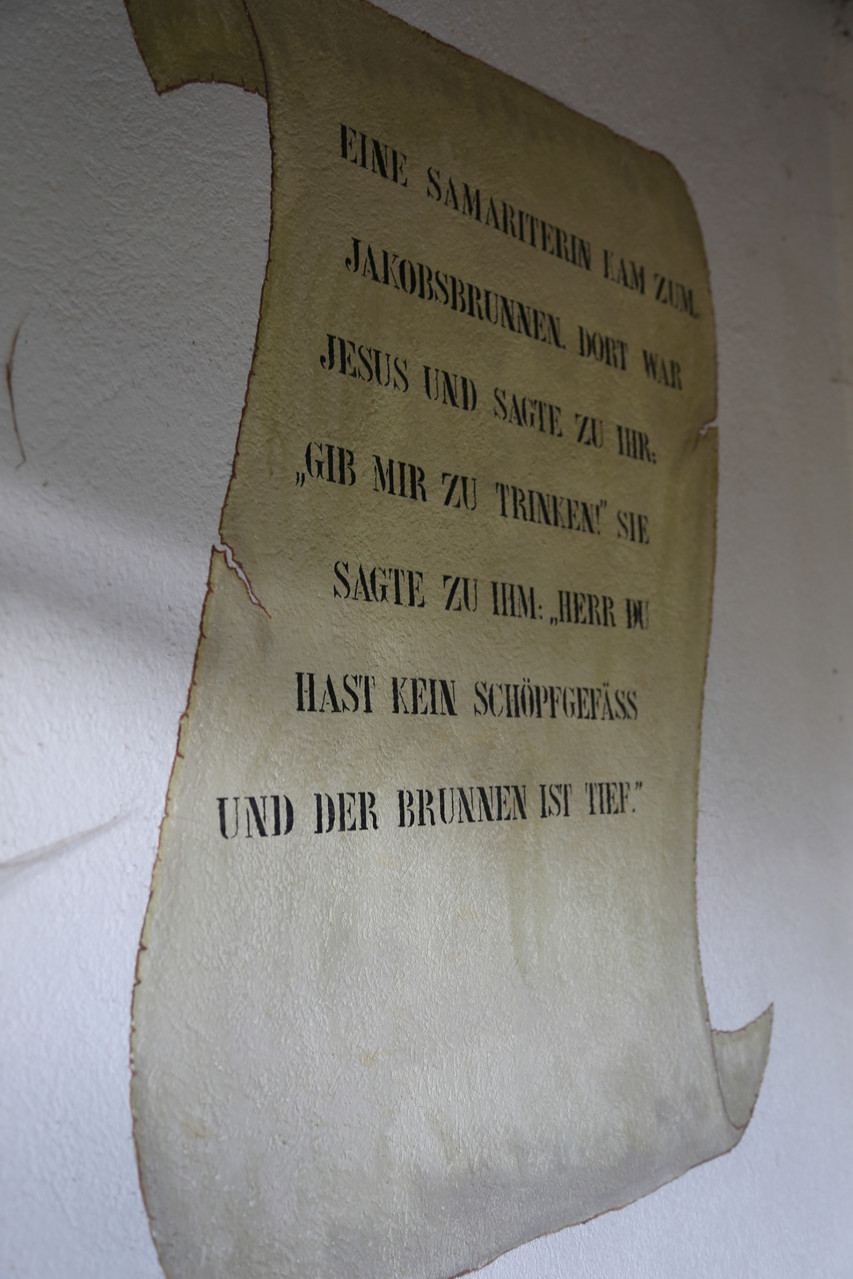 EINE SAMARITERIN KAM ZUM
JAKOBSBRUNNEN. DORT WAR
JESUS UND SAGTE ZU IHR:
„GIB MIR ZU TRINKEN!” SIE
SAGTE ZU IHM: „HERR DU
HAST KEIN SCHÖPFGEFÄSS
UND DER BRUNNEN IST TIEF.”